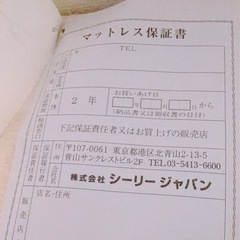 マットレス保証書
TEL
本体
2年
お買いあげ日
年 月 日 から
(納品書又は領収書の日付)
下記保証責任者又はお買上げの販売店
保証責任者
住所
会社名
〒107-0061 東京都港区北青山2-13-5
青山サンクレストビル2F TEL.03-5413-6600
株式会社 シーリージャパン
販売店
店名・住所